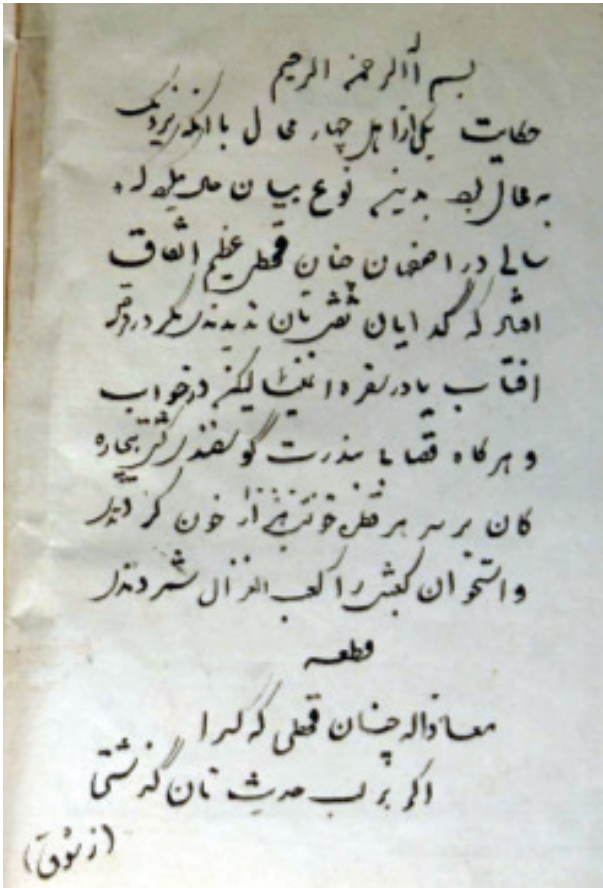 بسم الله الرحمن الرحیم
حکایت یکی از اهل چهار محال با آنکه نزدیک
به محال بود بدینه نوع بیان می‌کرد که
سالی در اصفهان چنان قحطی عظیم اتفاق
افتاد که گدایان نقش نان ندیدند مگر در قرص
افتاب و پا در سفره لیکن در خواب
و هرگاه قصاب بندرت گوسفندی کشتی بیچاره
گان بر سر هر قطره خون گردیدند
و استخوان کبش را کعب الغزال شمردندی
قطعه
معاذ الله چنان قحطی که گدا
اگر بر لب حدیث نان گذشتی